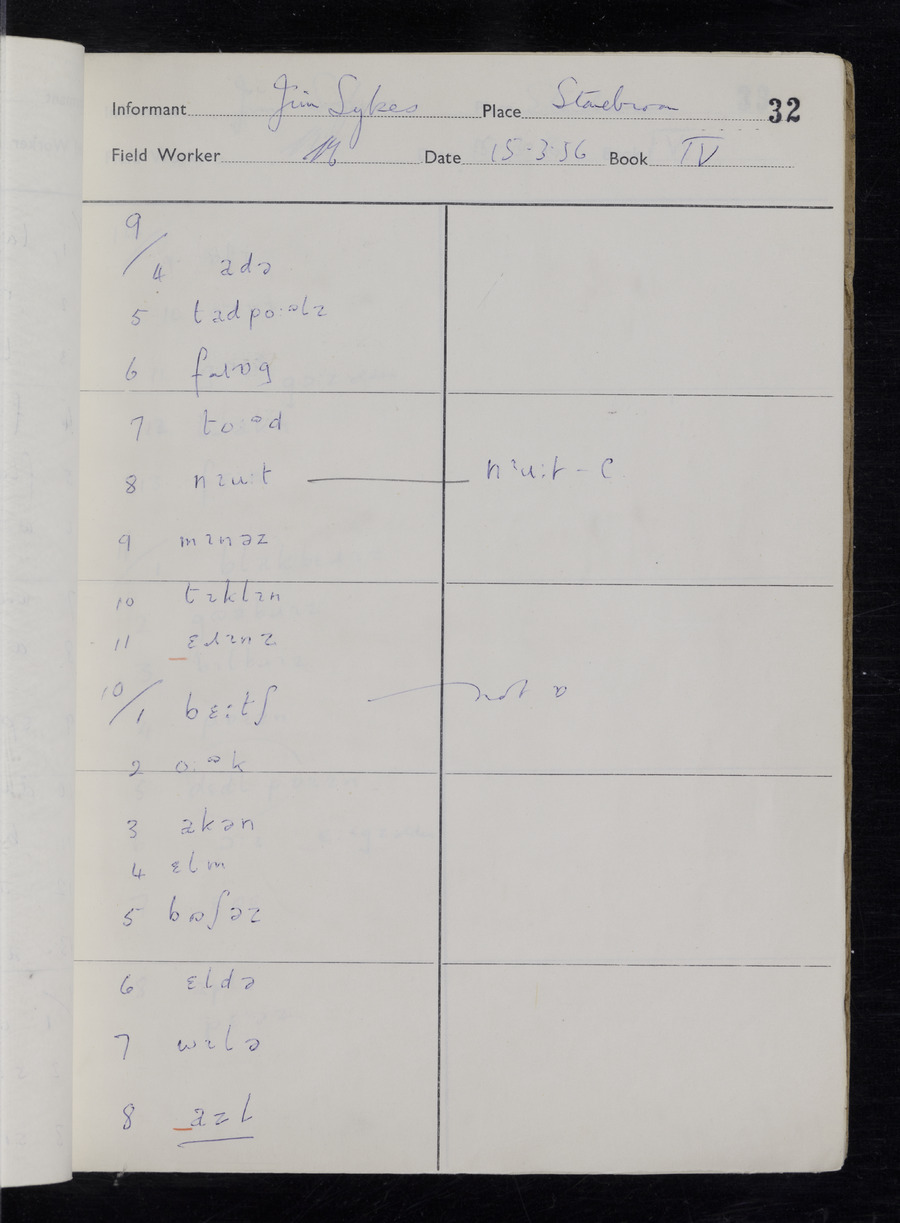 Informant Jim Sykes Place Stonebroom 32
Field Worker Date 15.3.56 Book IV
9/4 adə
5 tadpo:əlz
6 fɹɒg
7 to:əd
8 nɪu:t — nɪu:t - C
9 mɪnəz
10 tɪklɪn
11 ɛɹɪnz
10/1 bɛ:tʃ — not ɒ
2 o:ək
3 akən
4 ɛlm
5 bʊʃəz
6 ɛldə
7 wɪlə
8 azl